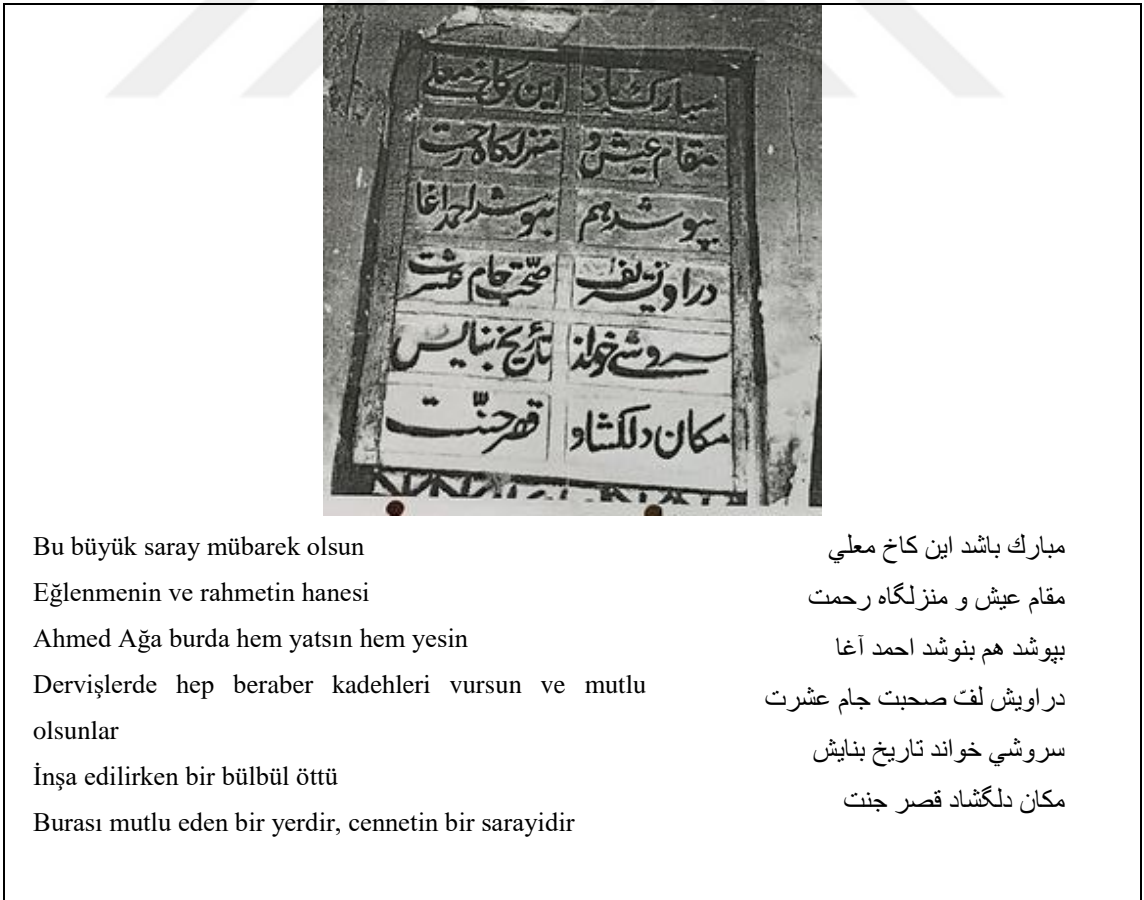 مبارکباد این کاخ معلی
مقام عیش و منزلکاه رحمت
بپوشد هم بنوشد احمد اغا
در او تشریف صحّت جام عشرت
سروشی خواند تاریخ بنایش
مکان دلکشا و قصر جنّت
Bu büyük saray mübarek olsun
Eğlenmenin ve rahmetin hanesi
Ahmed Ağa burda hem yatsın hem yesin
Dervişlerde hep beraber kadehleri vursun ve mutlu
olsunlar
İnşa edilirken bir bülbül öttü
Burası mutlu eden bir yerdir, cennetin bir sarayidir
مبارك باشد اين كاخ معلي
مقام عيش و منزلگاه رحمت
بپوشد هم بنوشد احمد آغا
دراويش لفّ صحبت جام عشرت
سروشي خواند تاريخ بنايش
مكان دلگشاد قصر جنت